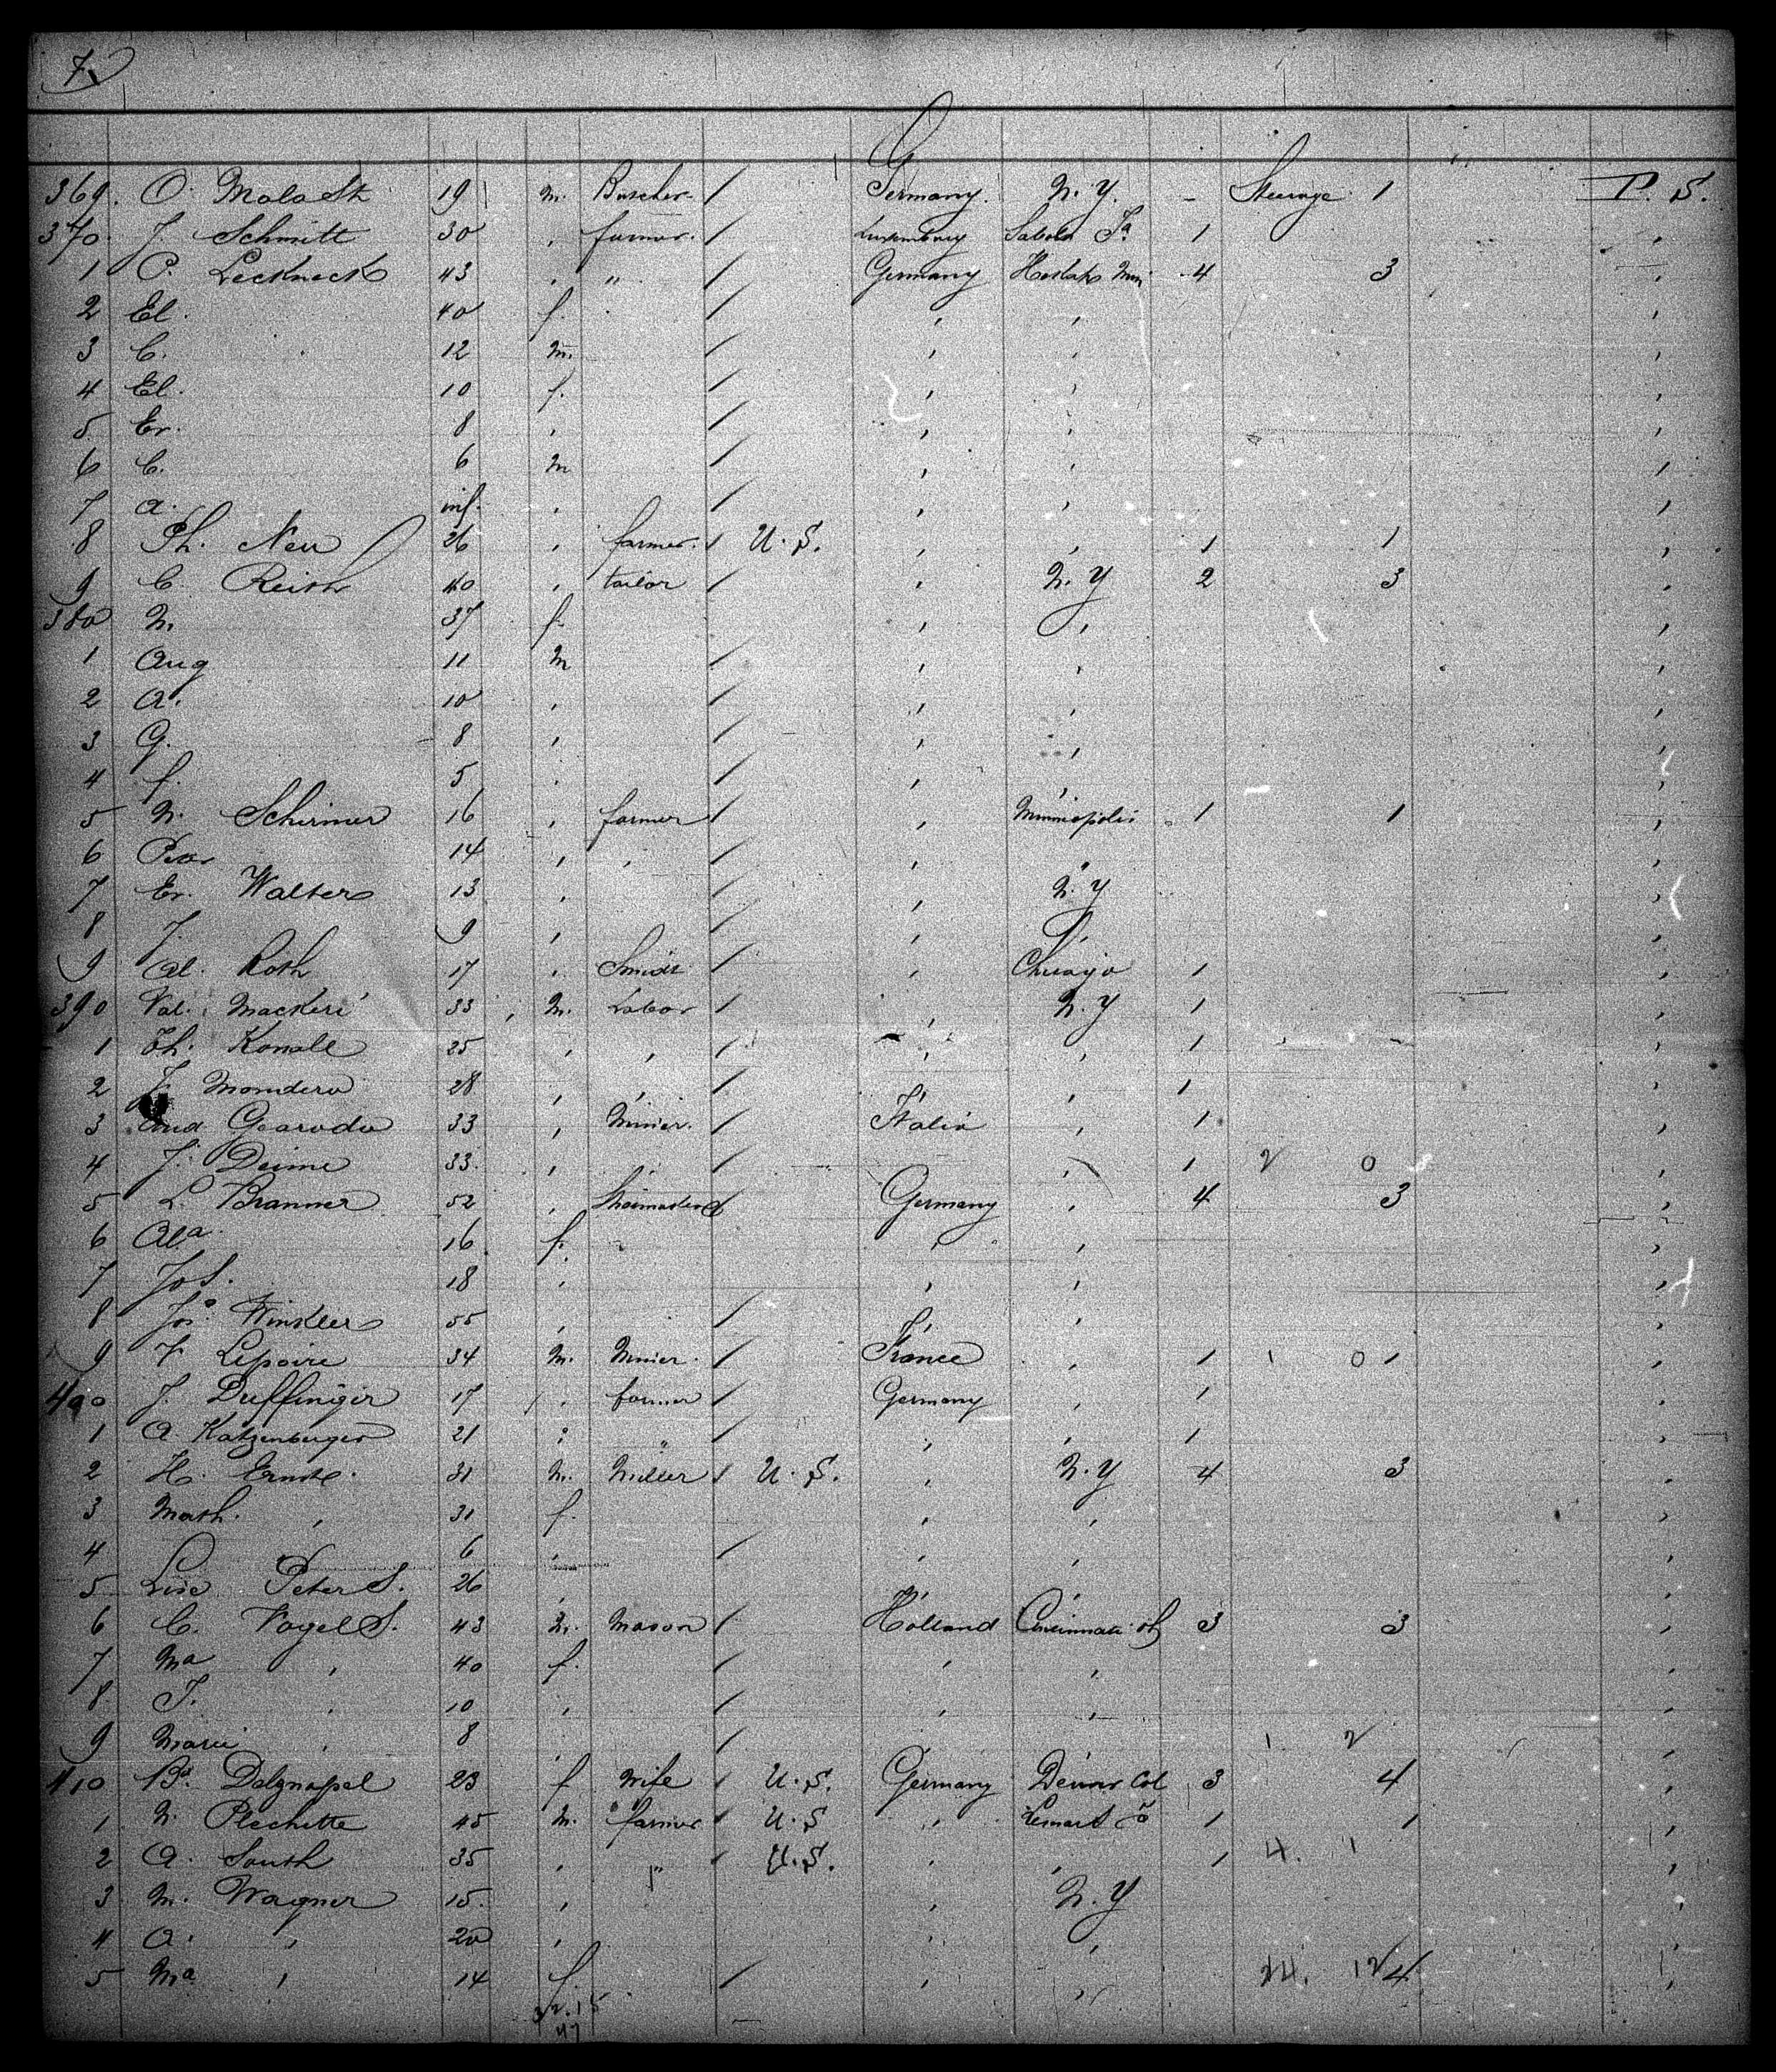 7
369. O. Molo St 19 m. Butcher / Germany. N. Y. - Steerage 1 P. S.
370. J. Schmitt 30 , farmer. / Luxemburg Sabola Ja. 1 ,
1 P. Leckneck 43 , " / Germany Min 4 3 ,
2 El. 40 f. / , , ,
3 C. 12 m. / , , ,
4 El. 10 f. / , , ,
5 Er. 8 , / , , ,
6 C. 6 m / , , ,
7 a. inf. , / , , ,
8 Ph. Neu 26 , farmer. / U. S. , , 1 1 ,
9 C. Reith 40 , tailor / , N. Y 2 3 ,
380 N. 37 f. , , ,
1 Aug 11 m / , , ,
2 A. 10 , / , , ,
3 G. 8 , / , , ,
4 f. 5 , / , , ,
5 N. Schirmer 16 , farmer / , Minniapolis 1 1 ,
6 Peter 14 , , / , " ,
7 Er. Walter 13 , / , N. Y ,
8 J. 9 , / , , ,
9 Al. Roth 17 , Smidt / , Chicago 1 ,
390 Val. Mackeri 33 , m. Labor / , N. Y 1 ,
1 Th. Konall 25 , , / , , 1 ,
2 J. Mondero 28 , , / , , 1 ,
3 And Gearodo 33 , Minier. / Italia , 1 ,
4 J. Deime 33. , / , , 1 2 0 ,
5 L. Branner 52 , Shoemaker / Germany , 4 3 ,
6 Ala. 16 f. , , ,
7 Jos. 18 , , , ,
8 Jos. Winkler 55 , / , , ,
9 F. Lepoire 34 m. Minier. / France , 1 1 0 1 ,
400 J. Duffinger 17 , farmer / Germany , 1 ,
1 A Katzenberger 21 , " / , , 1 ,
2 H. Ernst. 31 m. Miller / U. S. , N. Y 4 3 ,
3 Math. , 31 f. , , ,
4 6 , / , , ,
5 Lise Peter S. 26 , , , ,
6 C. Vogel S. 43 m. Mason / Holland Cincinnati oh 3 3 ,
7 Ma , 40 f. / , , ,
8 T. , 10 , / , , ,
9 Marie , 8 , / , , 1 2 ,
410 Bd. Dalgnapel 23 f wife / U. S. Germany Denver Col 3 4 ,
1 N. Plechette 45 m. farmer / U. S , Lemars Jo 1 1 ,
2 A. South 35 , " / U. S. , , 1 4. 1 ,
3 M. Wagner 15. , , N. Y ,
4 A. , 20 , , , ,
5 Ma , 14 f. / , , 24. 12 4 ,
32. 15
47